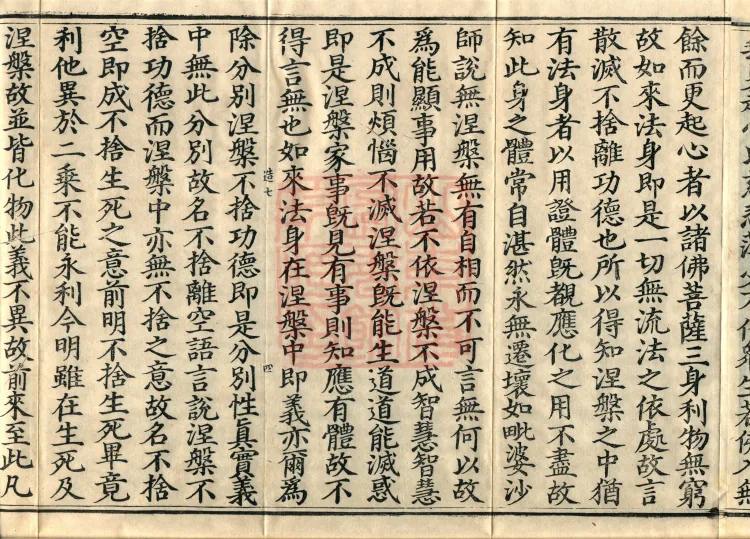 餘而更起心者以諸佛菩薩三身利物無窮
故如來法身即是一切無流法之依處故言
散滅不捨離功德也所以得知涅槃之中猶
有法身者以用證體旣覩應化之用不盡故
知此身之體常自湛然永無遷壞如毗婆沙
師說無涅槃無有自相而不可言無何以故
爲能顯事用故若不依涅槃不成智慧智慧
不成則煩惱不滅涅槃旣能生道道能滅惑
即是涅槃家事旣見有事則知應有體故不
得言無也如來法身在涅槃中即義亦爾爲
造七 四
除分別涅槃不捨功德即是分別性眞實義
中無此分別故名不捨離空語言說涅槃不
捨功德而涅槃中亦無不捨之意故名不捨
空即成不捨生死之意前明不捨生死畢竟
利他異於二乘不能永利今明雖在生死及
涅槃故並皆化物此義不異故前來至此凡